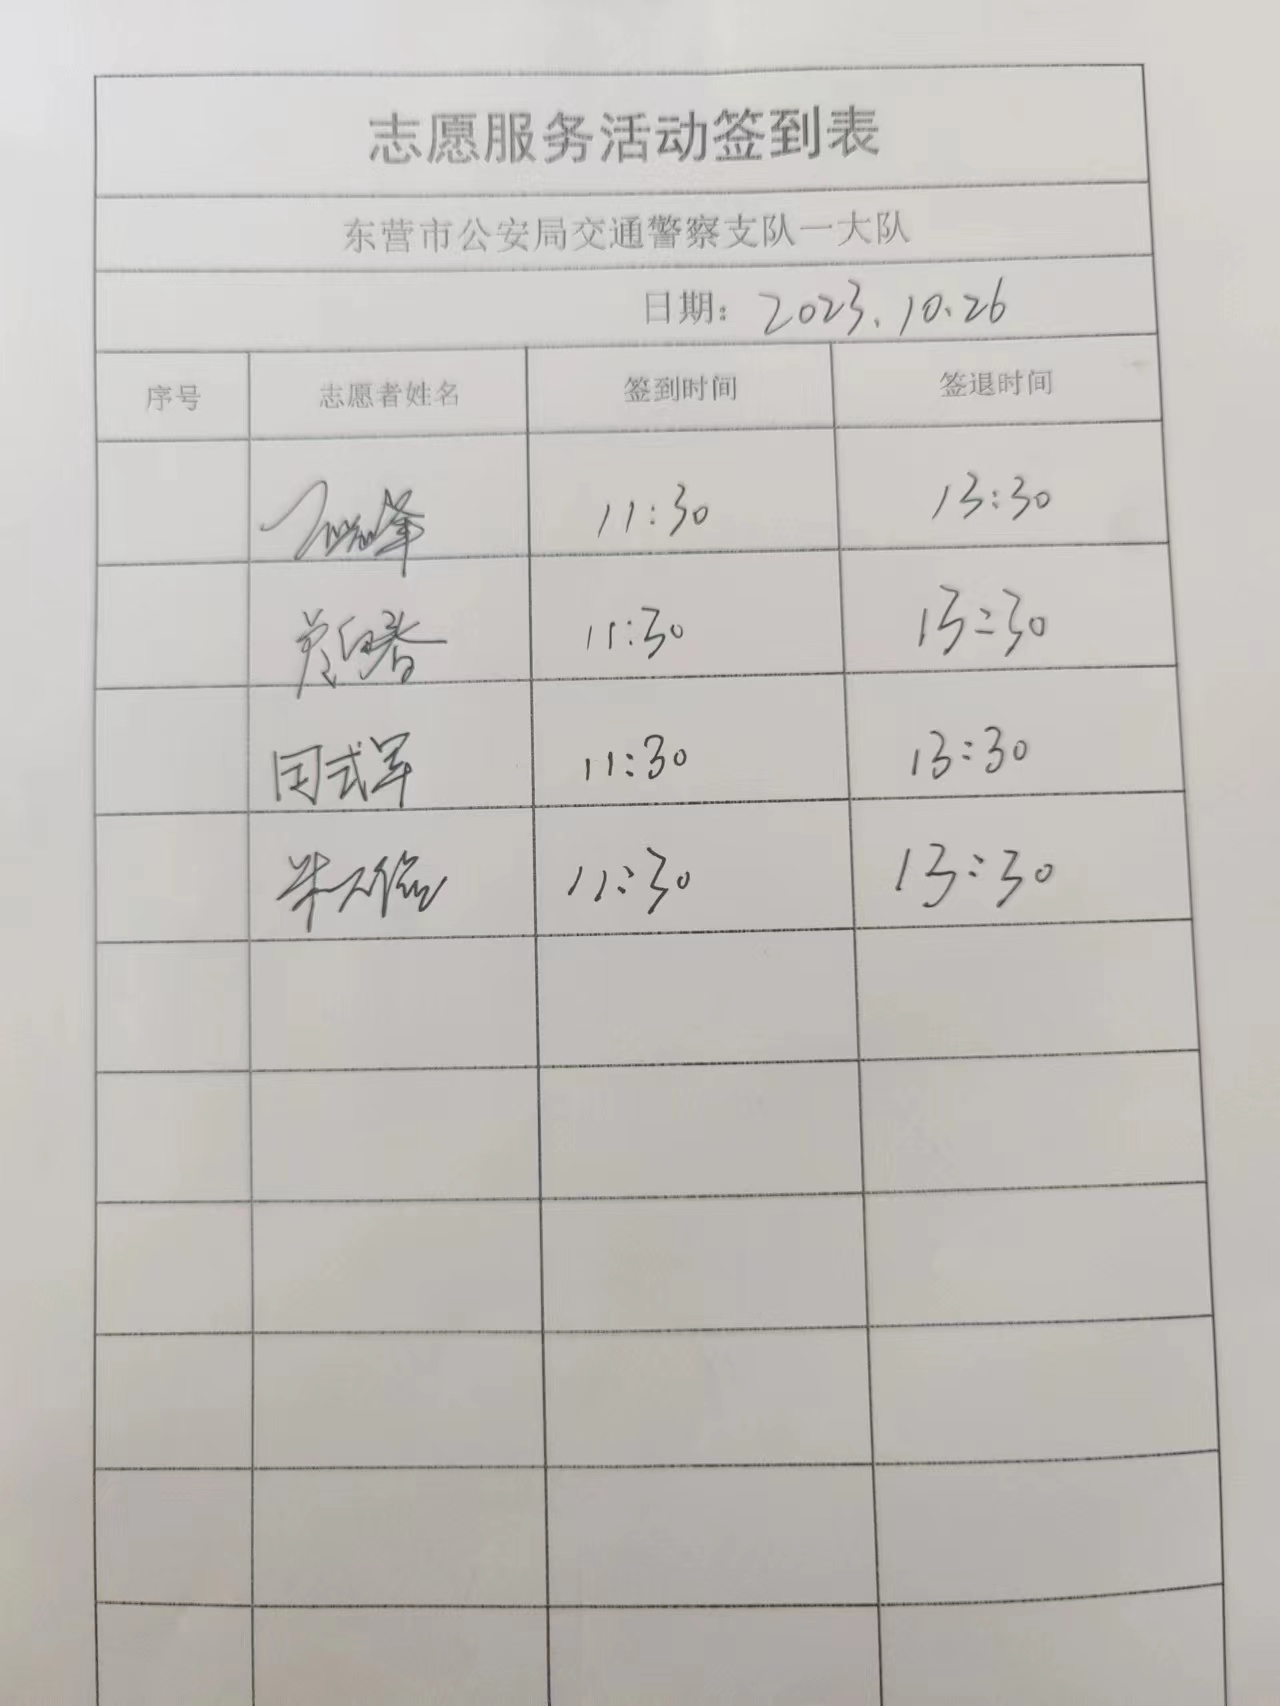 志愿服务活动签到表
东营市公安局交通警察支队一大队
日期：2023.10.26
序号 志愿者姓名 签到时间 签退时间
11:30 13:30
11:30 13:30
闫式军 11:30 13:30
11:30 13:30